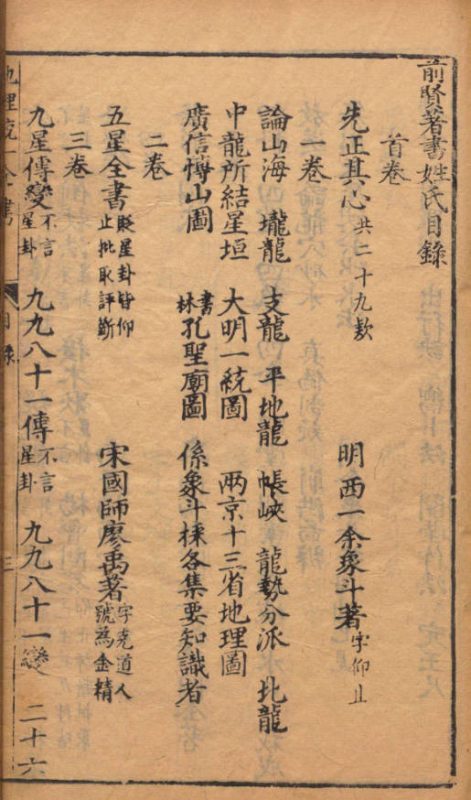 前賢著書姓氏目錄
首卷
先正其心 共二十九款 明西一余象斗著 字仰止
一卷
論山海 壠龍 支龍 平地龍 帳峽 龍勢分派 北龍
中龍所結星垣 大明一統圖 兩京十三省地理圖
廣信慱山圖 書林孔聖廟圖 係象斗採各集要知識者
二卷
五星全書 貶星卦皆仰止批取評斷 宋國師廖禹著 字堯道人號為金精
三卷
九星傳變 不言星卦 九九八十一傳 不言星卦 九九八十一變 二十六
地理統一全書 目錄 三